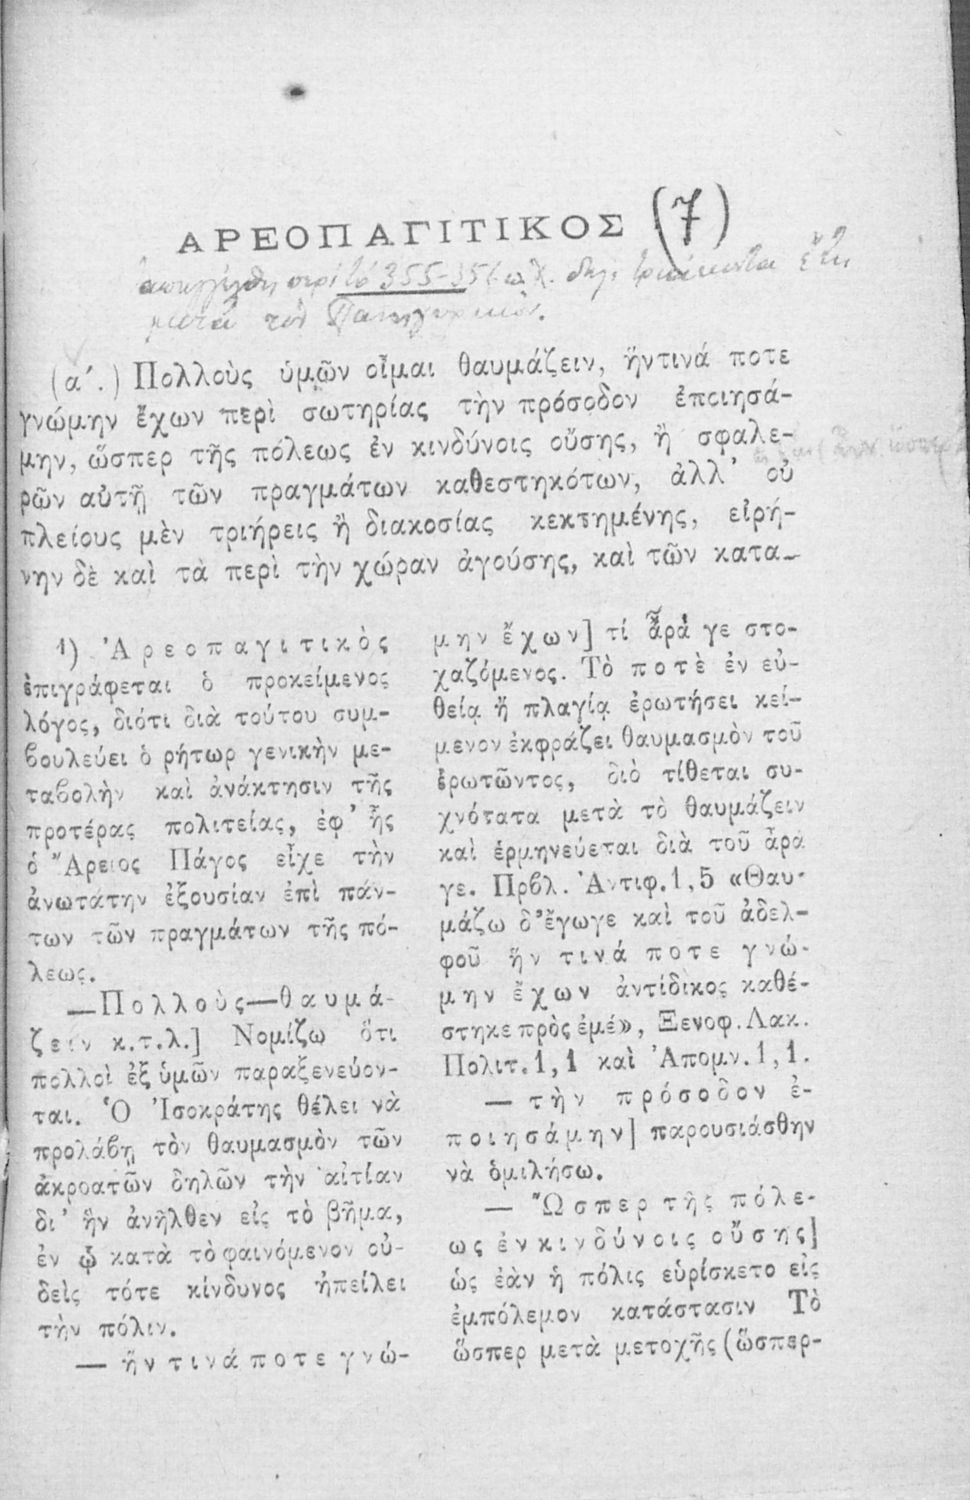 ΑΡΕΟΠΑΓΙΤΙΚΟΣ (7)
περὶ τὸ 355-35 π.Χ. δηλ. τριάκοντα ἔτη
μετὰ τὸν Πανηγυρικόν.
(α΄.) Πολλοὺς ὑμῶν οἶμαι θαυμάζειν, ἥντινά ποτε
γνώμην ἔχων περὶ σωτηρίας τὴν πρόσοδον ἐποιησά-
μην, ὥσπερ τῆς πόλεως ἐν κινδύνοις οὔσης, ἢ σφαλε-
ρῶν αὐτῇ τῶν πραγμάτων καθεστηκότων, ἀλλ’ οὐ
πλείους μὲν τριήρεις ἢ διακοσίας κεκτημένης, εἰρή-
νην δὲ καὶ τὰ περὶ τὴν χώραν ἀγούσης, καὶ τῶν κατα-
1) Ἀρεοπαγιτικὸς
ἐπιγράφεται ὁ προκείμενος
λόγος, διότι διὰ τούτου συμ-
βουλεύει ὁ ρήτωρ γενικὴν με-
ταβολὴν καὶ ἀνάκτησιν τῆς
προτέρας πολιτείας, ἐφ’ ἧς
ὁ Ἄρειος Πάγος εἶχε τὴν
ἀνωτάτην ἐξουσίαν ἐπὶ πάν-
των τῶν πραγμάτων τῆς πό-
λεως.
—Πολλοὺς—θαυμά-
ζειν κ.τ.λ.] Νομίζω ὅτι
πολλοὶ ἐξ ὑμῶν παραξενεύον-
ται. Ὁ Ἰσοκράτης θέλει νὰ
προλάβῃ τὸν θαυμασμὸν τῶν
ἀκροατῶν δηλῶν τὴν αἰτίαν
δι’ ἣν ἀνῆλθεν εἰς τὸ βῆμα,
ἐν ᾧ κατὰ τὸ φαινόμενον οὐ-
δεὶς τότε κίνδυνος ἠπείλει
τὴν πόλιν.
— ἥντινά ποτε γνώ-
μην ἔχων] τί ἆρά γε στο-
χαζόμενος. Τὸ ποτὲ ἐν εὐ-
θείᾳ ἢ πλαγίᾳ ἐρωτήσει κεί-
μενον ἐκφράζει θαυμασμὸν τοῦ
ἐρωτῶντος, διὸ τίθεται συ-
χνότατα μετὰ τὸ θαυμάζειν
καὶ ἑρμηνεύεται διὰ τοῦ ἆρά
γε. Πρβλ. Ἀντιφ.1,5 «Θαυ-
μάζω δ’ἔγωγε καὶ τοῦ ἀδελ-
φοῦ ἥντινά ποτε γνώ-
μην ἔχων ἀντίδικος καθέ-
στηκε πρὸς ἐμέ», Ξενοφ. Λακ.
Πολιτ.1,1 καὶ Ἀπομν.1,1.
— τὴν πρόσοδον ἐ-
ποιησάμην] παρουσιάσθην
νὰ ὁμιλήσω.
— Ὥσπερ τῆς πόλε-
ως ἐν κινδύνοις οὔσης]
ὡς ἐὰν ἡ πόλις εὑρίσκετο εἰς
ἐμπόλεμον κατάστασιν Τὸ
ὥσπερ μετὰ μετοχῆς (ὥσπερ-